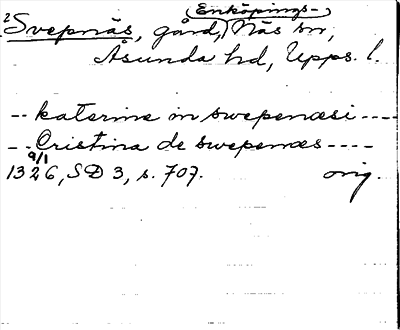 Enköpings-
2 Svepnäs, gård, Näs sn,
Åsunda hd, Upps. l.
-- katerine in swepenæsi ----
-- Cristina de swepenæs ----
9/1
1326, SD 3, s. 707. orig.